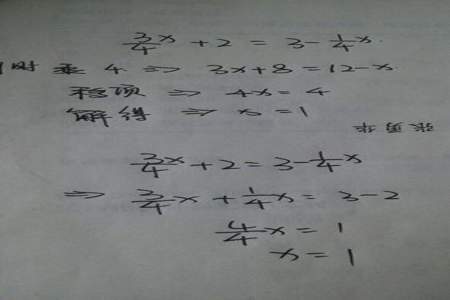 3/4 x + 2 = 3 - 1/4 x
时 乘 4 ⇒ 3x+8=12-x
移项 ⇒ 4x=4
解得 ⇒ x=1
3/4 x + 2 = 3 - 1/4 x
⇒ 3/4 x + 1/4 x = 3-2
4/4 x = 1
x = 1